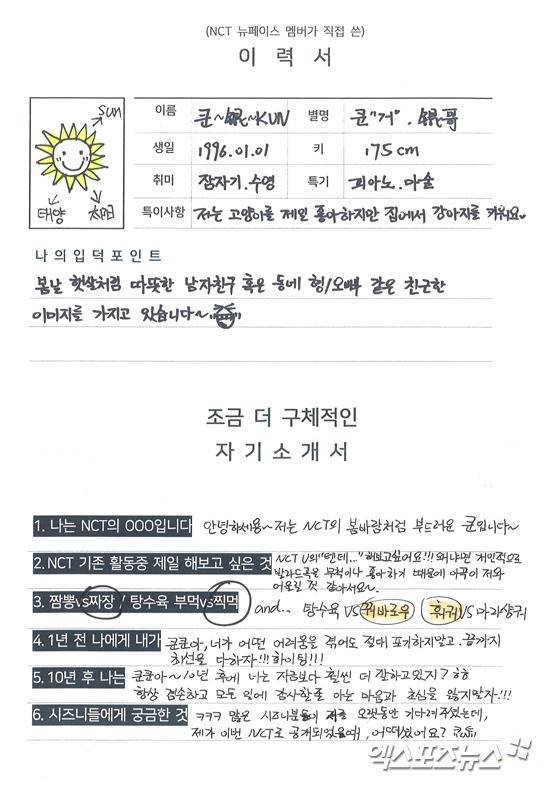 (NCT 뉴페이스 멤버가 직접 쓴)
이 력 서
SUN
태양 太阳
이름 쿤~锟~KUN 별명 쿤"거". 锟哥
생일 1996.01.01 키 175cm
취미 잠자기.수영 특기 피아노.마술
특이사항 저는 고양이를 제일 좋아하지만 집에서 강아지를 키워요
나의 입덕포인트
봄날 햇살처럼 따뜻한 남자친구 혹은 동네 형/오빠 같은 친근한
이미지를 가지고 있습니다~
조금 더 구체적인
자 기 소 개 서
1. 나는 NCT의 OOO입니다 안녕하세용~ 저는 NCT의 봄바람처럼 부드러운 쿤입니다~
2. NCT 기존 활동중 제일 해보고 싶은 것 NCT U의 "텐데..." 해보고싶어요!!! 왜냐면 개인적으로
발라드곡을 무척이나 좋아하기 때문에 아무래도 저와
어울릴 것 같아서요~
3. 짬뽕vs짜장 / 탕수육 부먹vs찍먹 and.. 탕수육 VS 꿔바로우 훠궈 VS 마라샹궈
4. 1년 전 나에게 내가 쿤쿤아, 너가 어떤 어려움을 겪어도 절대 포기하지말고 끝까지
최선을 다하자!!! 화이팅!!!
5. 10년 후 나는 쿤쿤아~ 10년 후에 너는 지금보다 훨씬 더 잘하고있지? ㅎㅎ
항상 겸손하고 모든 일에 감사할줄 아는 마음과 초심을 잃지말자~!!!
6. 시즈니들에게 궁금한 것 ㅋㅋㅋ 많은 시즈니분들이 저를 오랫동안 기다려주셨는데,
제가 이번 NCT로 공개되었을때, 어땠었어요?
엑스포츠뉴스